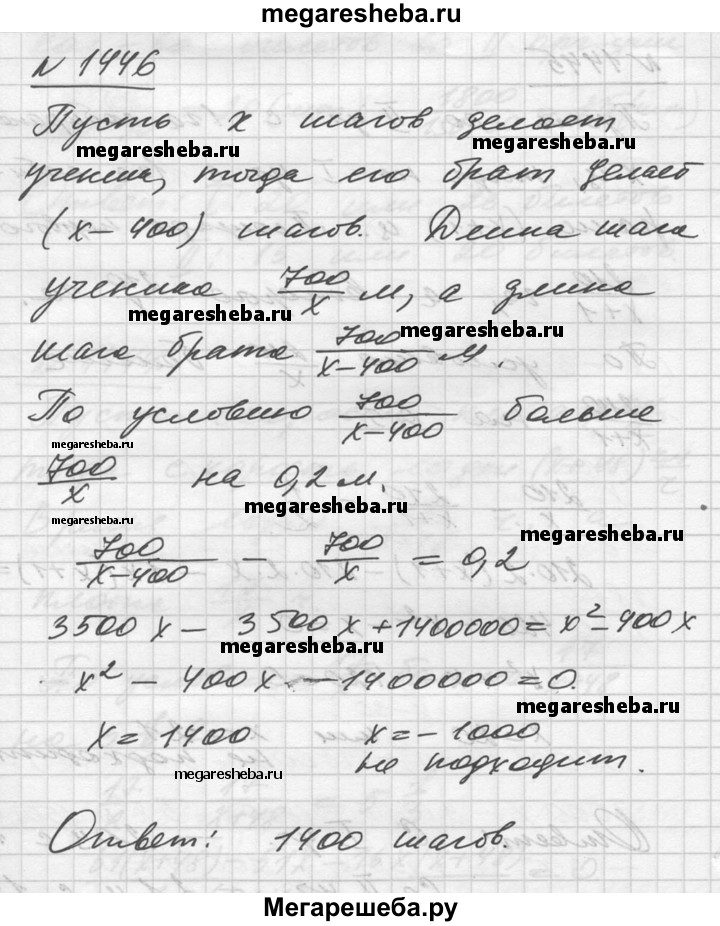 megaresheba.ru
N 1446
Пусть x шагов делает
megaresheba.ru
megaresheba.ru
ученик, тогда его брат делает
(x-400) шагов. Длина шага
ученика 700/x м, а длина
megaresheba.ru
megaresheba.ru
шага брата 700/(x-400) м.
По условию 700/(x-400) больше
megaresheba.ru
700/x на 0,2 м.
megaresheba.ru
megaresheba.ru
megaresheba.ru
700/(x-400) - 700/x = 0,2
3500x - 3500x + 1400000 = x² - 400x
megaresheba.ru
x² - 400x - 1400000 = 0.
megaresheba.ru
x = 1400 x = -1000
megaresheba.ru
не подходит.
Ответ: 1400 шагов.
Мегарешеба.ру